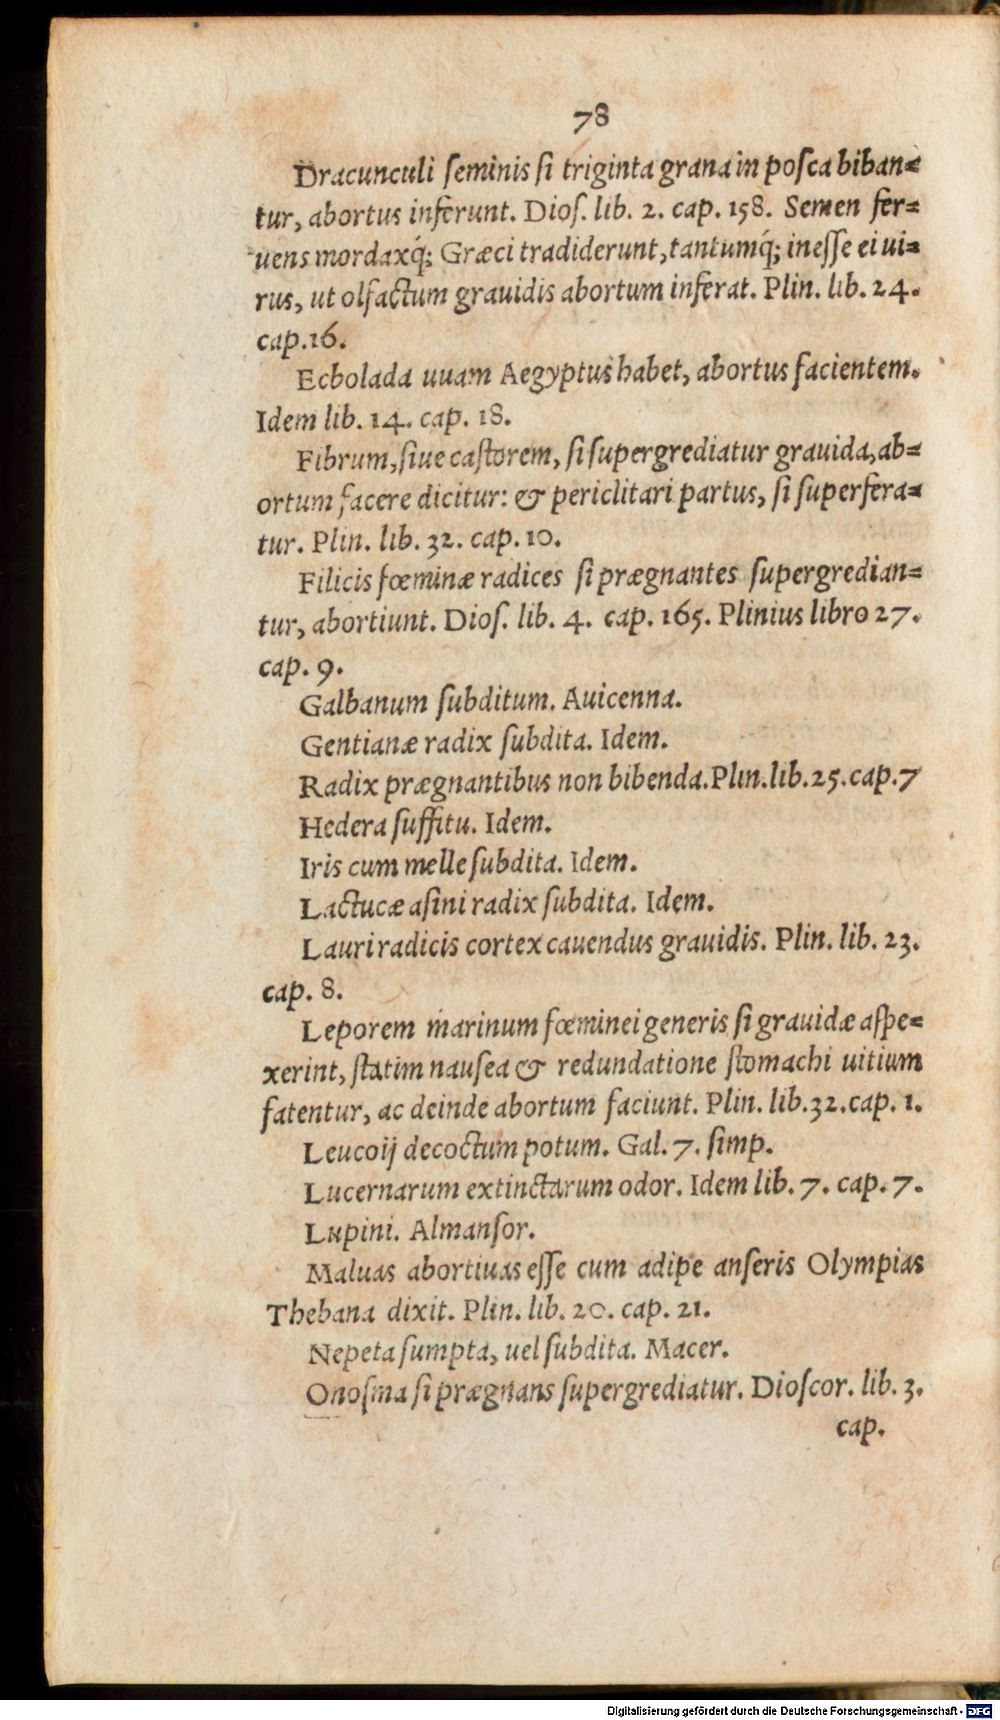 78
Dracunculi ſeminis ſi triginta grana in poſca biban=
tur, abortus inferunt. Dioſ. lib. 2. cap. 158. Semen fer=
uens mordaxq́; Græci tradiderunt, tantumq́; ineſſe ei ui=
rus, ut olfactum grauidis abortum inferat. Plin. lib. 24.
cap. 16.
Ecbolada uuam Aegyptus habet, abortus facientem.
Idem lib. 14. cap. 18.
Fibrum, ſiue caſtorem, ſi ſupergrediatur grauida, ab=
ortum facere dicitur: & periclitari partus, ſi ſuperfera=
tur. Plin. lib. 32. cap. 10.
Filicis fœminæ radices ſi prægnantes ſupergredian=
tur, abortiunt. Dioſ. lib. 4. cap. 165. Plinius libro 27.
cap. 9.
Galbanum ſubditum. Auicenna.
Gentianæ radix ſubdita. Idem.
Radix prægnantibus non bibenda. Plin. lib. 25. cap. 7
Hedera ſuffitu. Idem.
Iris cum melle ſubdita. Idem.
Lactucæ aſini radix ſubdita. Idem.
Lauri radicis cortex cauendus grauidis. Plin. lib. 23.
cap. 8.
Leporem marinum fœminei generis ſi grauidæ aſpe=
xerint, ſtatim nauſea & redundatione ſtomachi uitium
fatentur, ac deinde abortum faciunt. Plin. lib. 32. cap. 1.
Leucoij decoctum potum. Gal. 7. ſimp.
Lucernarum extinctarum odor. Idem lib. 7. cap. 7.
Lupini. Almanſor.
Maluas abortiuas eſſe cum adipe anſeris Olympias
Thebana dixit. Plin. lib. 20. cap. 21.
Nepeta ſumpta, uel ſubdita. Macer.
Onoſma ſi prægnans ſupergrediatur. Dioſcor. lib. 3.
cap.
Digitalisierung gefördert durch die Deutsche Forschungsgemeinschaft - DFG